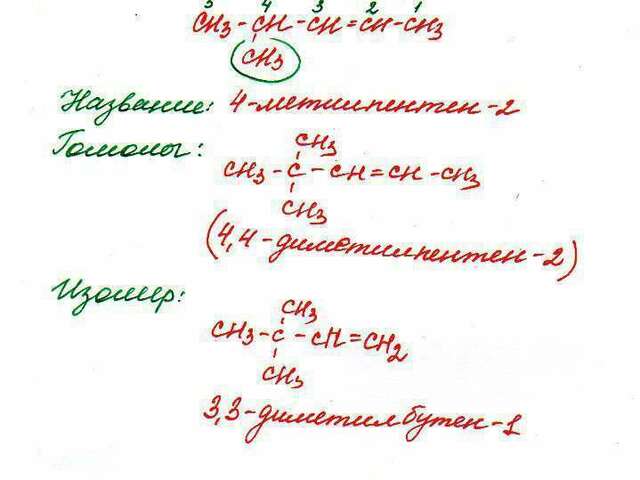 5 4 3 2 1
CH3 - CH - CH = CH - CH3
CH3
Название: 4-метилпентен-2
Гомологи:
CH3
CH3 - C - CH = CH - CH3
CH3
(4,4-диметилпентен-2)
Изомер:
CH3
CH3 - C - CH = CH2
CH3
3,3-диметилбутен-1